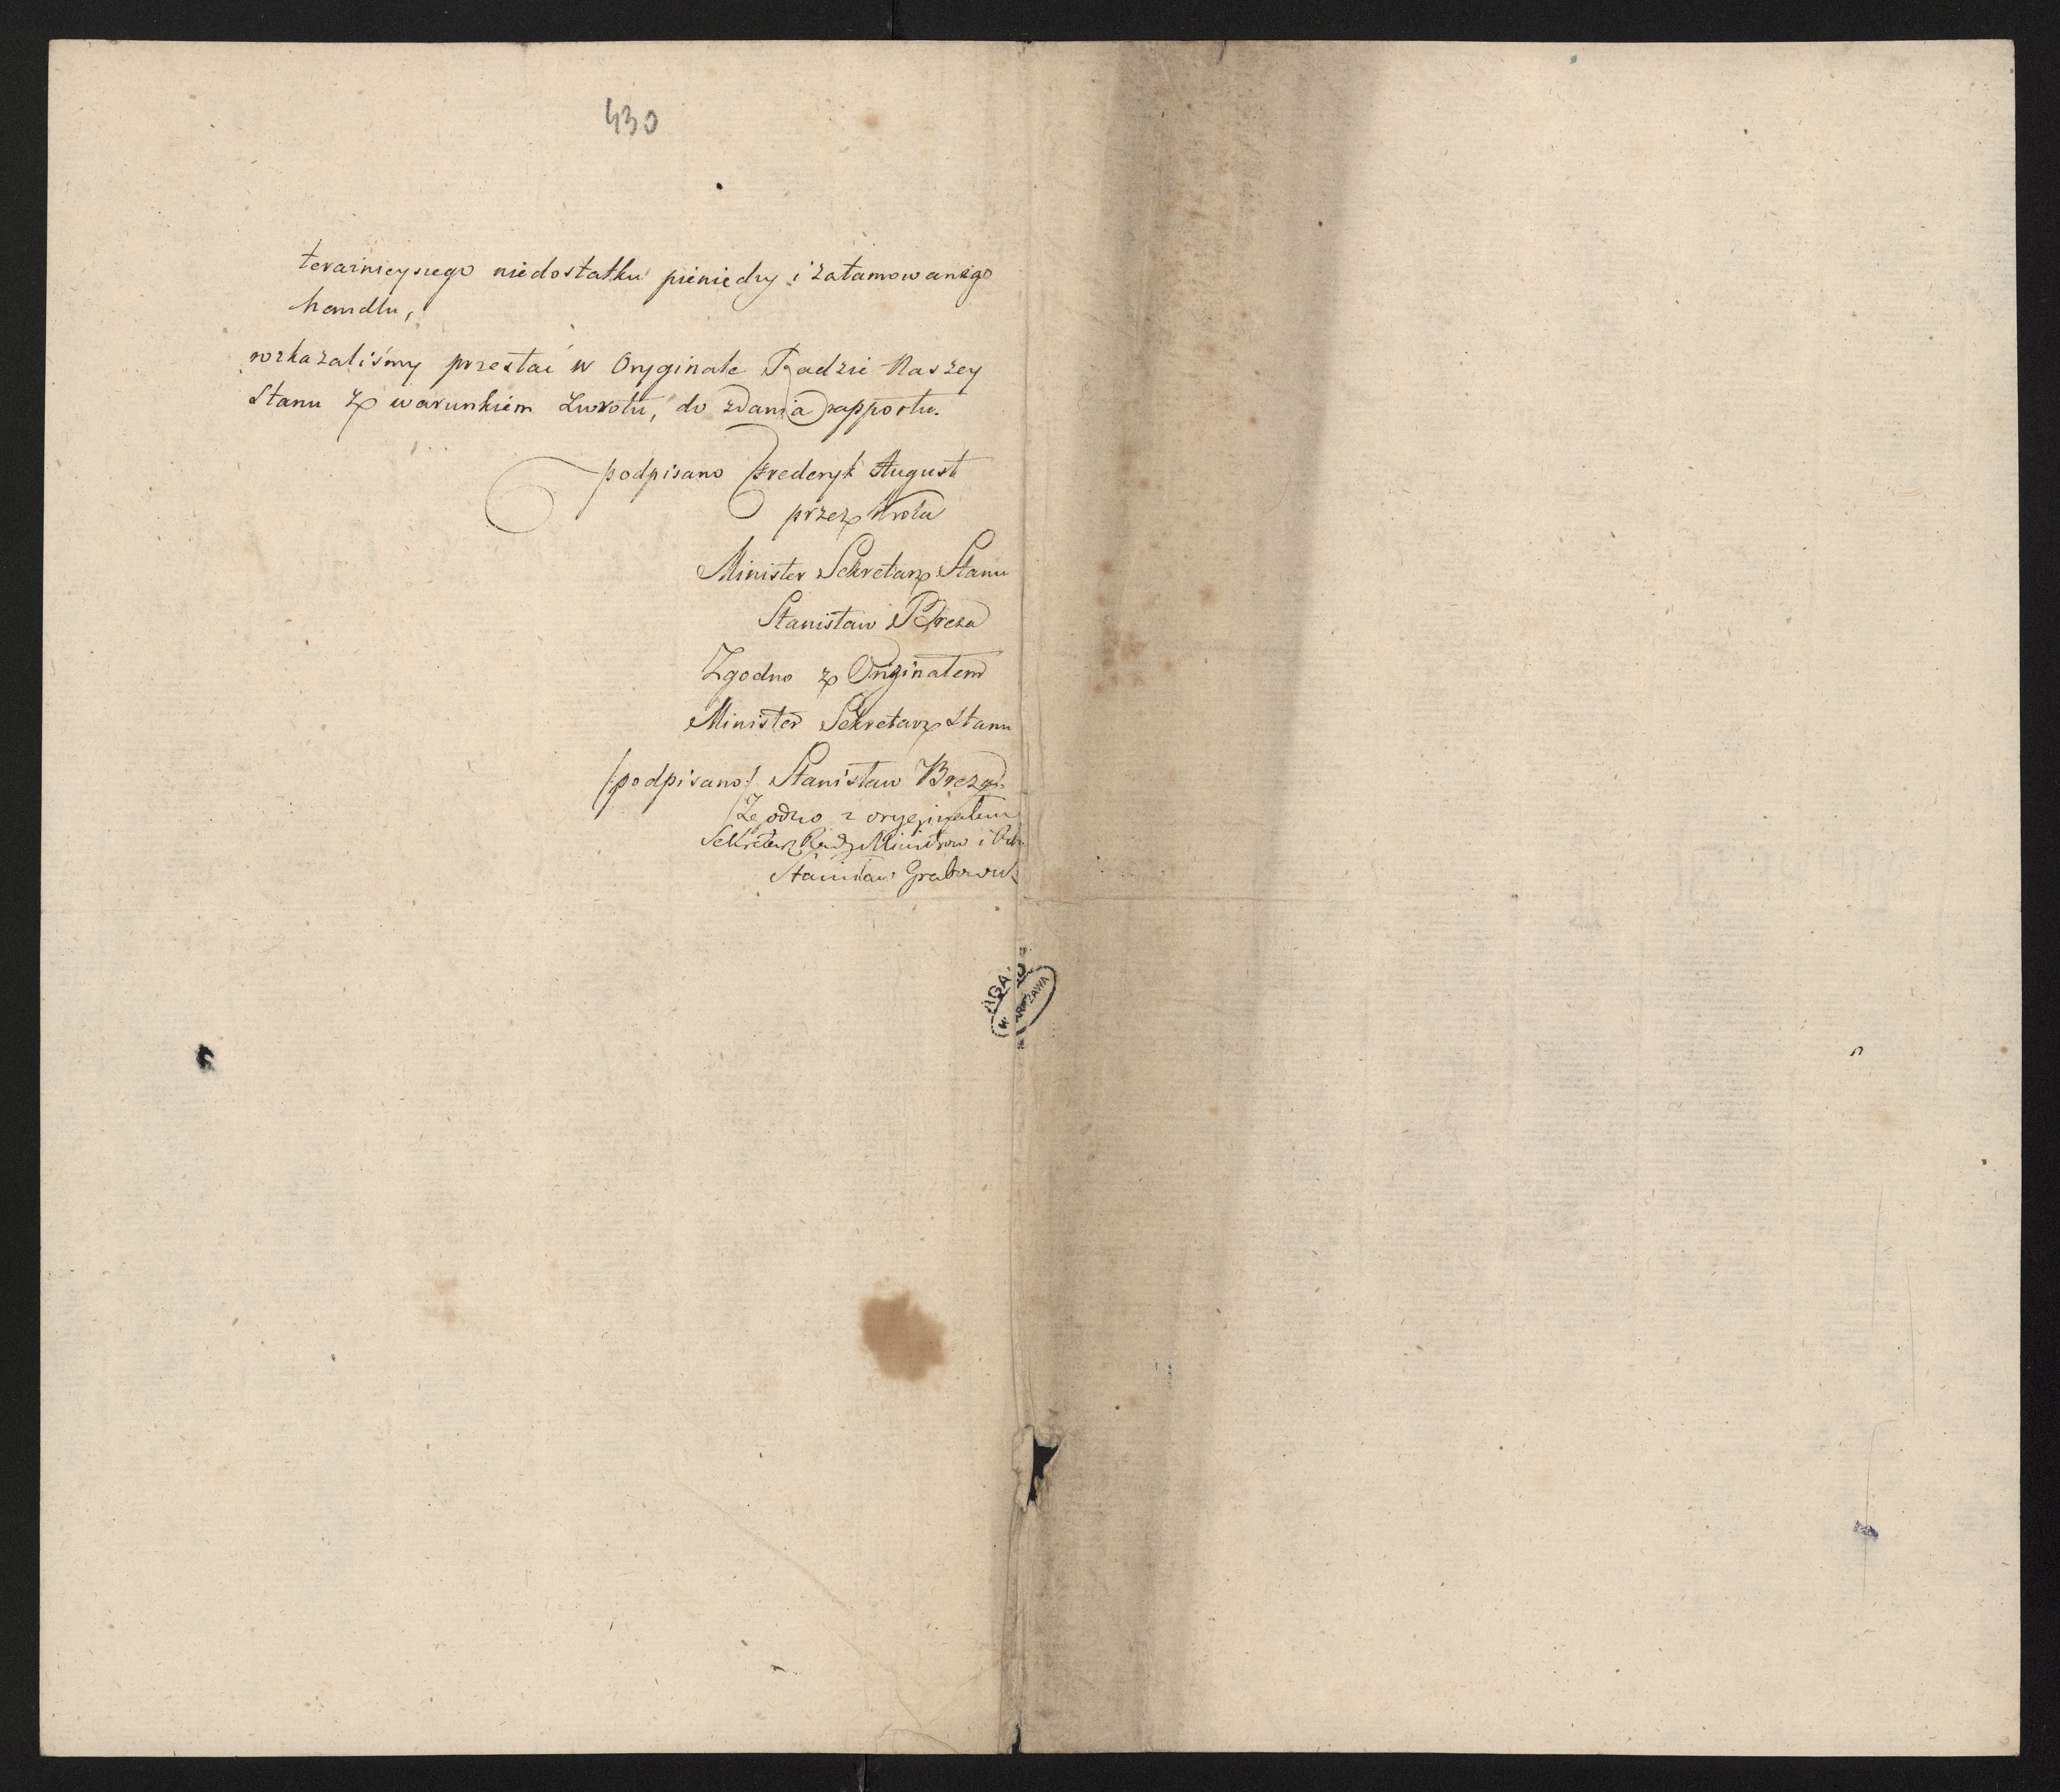 430
teraźnieyszego niedostatku pieniędzy i zatamowanego
handlu,
rozkazaliśmy przesłać w Oryginale Radzie Naszey
Stanu z warunkiem zwrotu, do zdania rapportu.
podpisano Frederyk August
przez Krola
Minister Sekretarz Stanu
Stanisław Breza
Zgodno z Originałem
Minister Sekretarz Stanu
/:podpisano:/ Stanisław Breza
Zgodno z oryginałem
Sekretarz Rady Ministrow i
Stanisław Grabowski
AGAD
W WARSZAWA